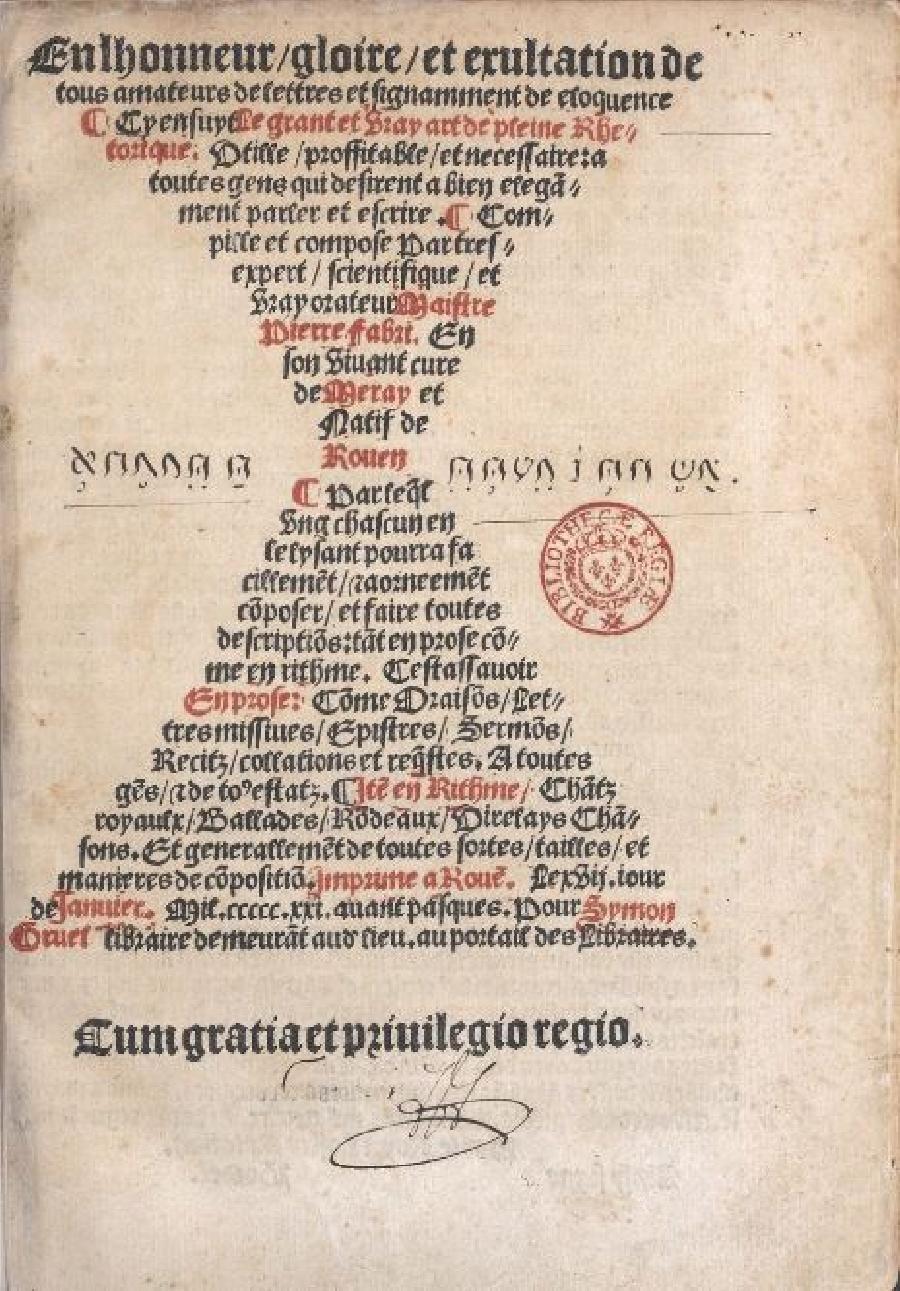 En lhonneur/gloire/et exultation de
tous amateurs de lettres et signamment de eloquence
¶ Cy ensuyt Le grant et vray art de pleine Rhe⸗
torique: Utille /proffitable/et necessaire: a
toutes gens qui desirent a bien elegā⸗
ment parler et escrire. ¶ Com⸗
pille et compose Par tres⸗
expert / scientifique /et
vray orateur Maistre
Pierre Fabri. En
son vivant cure
de Meray et
Natif de
Rouen
¶ Par leq̄l
vng chascun en
le lysant pourra fa
cillemēt/⁊ aorneemēt
cōposer/ et faire toutes
descriptiōs: tāt en prose cō⸗
me en rithme. Cestassauoir
En prose: Cōme Oraisōs/ Let⸗
tres missiues/ Epistres/ Sermōs/
Recitz/collations et req̄stes. A toutes
gēs/⁊ de toꝰ estatz. ¶ Itē en Rithme/ Chātz
royaulx/Ballades/Rōdeaux/Virelays Chā⸗
sons. Et generallemēt de toutes sortes/tailles/et
manieres de cōpositiō. Imprime a Rouē. Le xvij. iour
de Januier. Mil.ccccc.xxi. auant pasques. Pour Symon
Gruel libraire demeurāt aud lieu. au portail des Libraires.
BIBLIOTHECÆ REGIÆ
Cum gratia et priuilegio regio.